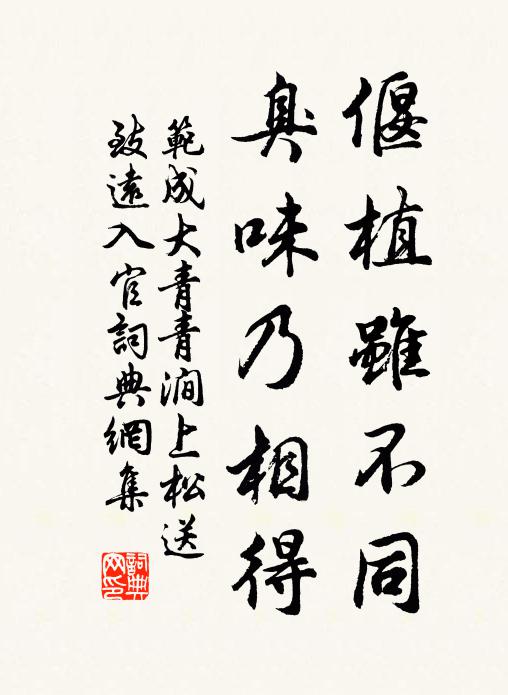 偃植雖不同
臭味乃相得
範成大青青澗上松送
致遠入官詞典網集
詞典
网印